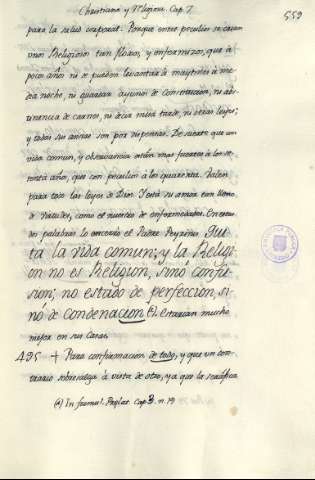 Christiano y Religioso. Cap. 7.
559
para la salud corporal. Porque entre peculios se crian
unos Religiosos tan flacos, y enfermizos, que à
pocos años ni se pueden levantar à maytines à me
dia noche, ni guardar ayunos de Constitucion, ni abs
tinencia de carnes, ni decir misa tarde, ni otras leyes;
y todas sus ansias son por dispensas. De suerte que en
vida comun, y observancia estàn mas fuertes à los se
tenta años, que con peculios à los quarenta. Valen
para todo las leyes de Dios. Y està su amor tan lleno
de virtudes, como el nuestro de enfermedades. En estas
palabras lo encerrò el Padre Reyna: Qui
tà la vida comun; y la Religi
on no es Religion, sino confu
sion; no estado de perfeccion, si
nò de condenacion (*). estarian mucho
mejor en sus Casas.
495 + Para confirmacion de todo, y que un con
trario sobresalga à vista de otro, ya que la serafica
(*) In formul. Cap. 3. n. 19